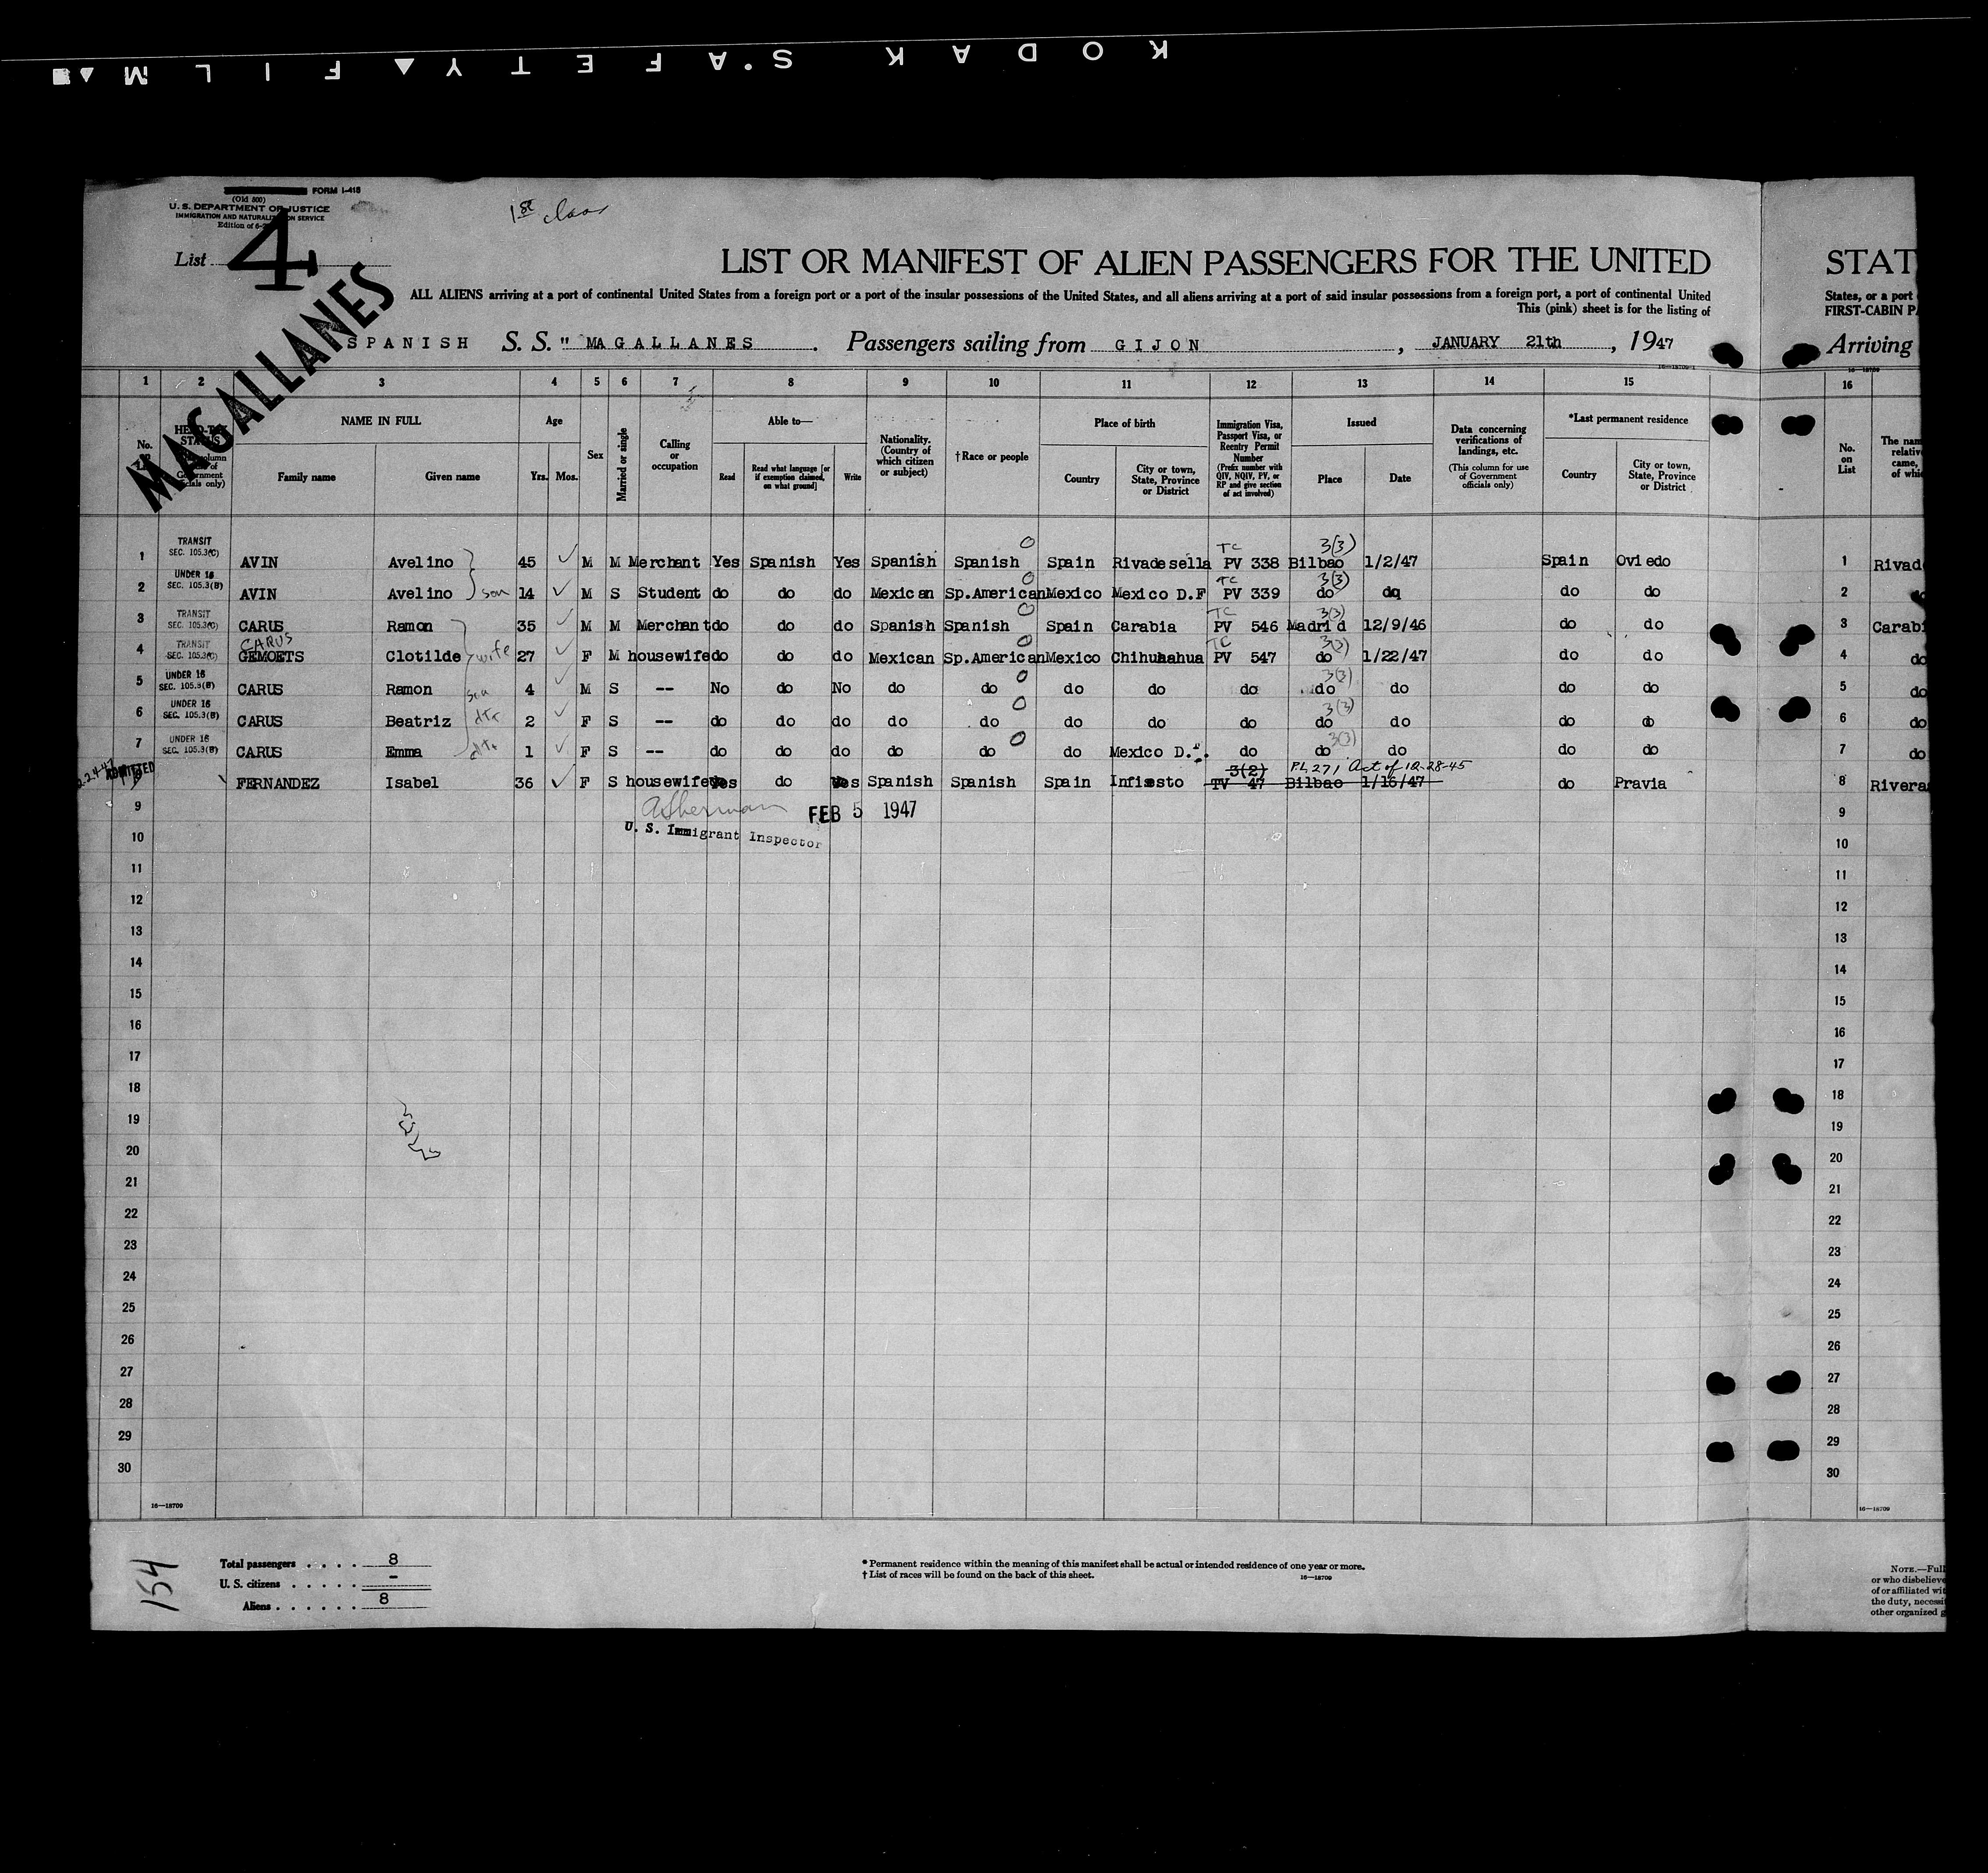 KODAK S'AFETY FILM
FORM I-415
(Old 500)
U. S. DEPARTMENT OF JUSTICE
IMMIGRATION AND NATURALIZATION SERVICE
Edition of 6-
1st class
List 4
MAGALLANES
LIST OR MANIFEST OF ALIEN PASSENGERS FOR THE UNITED
STAT
ALL ALIENS arriving at a port of continental United States from a foreign port or a port of the insular possessions of the United States, and all aliens arriving at a port of said insular possessions from a foreign port, a port of continental United
States, or a port
This (pink) sheet is for the listing of
FIRST-CABIN P
SPANISH S. S. " MAGALLANES. Passengers sailing from GIJON, JANUARY 21th, 1947
Arriving
16—18709-1
1 2 3 4 5 6 7 8 9 10 11 12 13 14 15 16
No. HEAD-TAX STATUS column of Government officials only)
NAME IN FULL Family name Given name
Age Yrs. Mos.
Sex
Married or single
Calling or occupation
Able to— Read Read what language [or if exemption claimed, on what ground] Write
Nationality. (Country of which citizen or subject)
†Race or people
Place of birth Country City or town, State, Province or District
Immigration Visa, Passport Visa, or Reentry Permit Number (Prefix number with QIV, NQIV, PV, or RP and give section of act involved)
Issued Place Date
Data concerning verifications of landings, etc. (This column for use of Government officials only)
*Last permanent residence Country City or town, State, Province or District
No. on List
The nam relativ came, of whic
TRANSIT SEC. 105.3(C) TC 3(3)
1 AVIN Avelino 45 M M Merchant Yes Spanish Yes Spanish Spanish Spain Rivadesella PV 338 Bilbao 1/2/47 Spain Oviedo 1 Rivad
UNDER 16 SEC. 105.3(B) TC 3(3)
2 AVIN Avelino son 14 M S Student do do do Mexican Sp.American Mexico Mexico D.F PV 339 do dq do do 2 do
TRANSIT SEC. 105.3(C) TC 3(3)
3 CARUS Ramon 35 M M Merchant do do do Spanish Spanish Spain Carabia PV 546 Madrid 12/9/46 do do 3 Carabi
TRANSIT SEC. 105.3(C) CARUS TC 3(3)
4 GEMOETS Clotilde wife 27 F M housewife do do do Mexican Sp.American Mexico Chihuahua PV 547 do 1/22/47 do do 4 do
UNDER 16 SEC. 105.3(B) 3(3)
5 CARUS Ramon son 4 M S -- No do No do do do do do do do do do 5 do
UNDER 16 SEC. 105.3(B) 3(3)
6 CARUS Beatriz dtr 2 F S -- do do do do do do do do do do do do 6 do
UNDER 16 SEC. 105.3(B) 3(3)
7 CARUS Emma dtr 1 F S -- do do do do do do Mexico D.F. do do do do do 7 do
ADMITTED 3(2) PL 271 Act of 12-28-45
FERNANDEZ Isabel 36 F S housewife Yes do Yes Spanish Spanish Spain Infiesto TV 47 Bilbao 1/16/47 do Pravia 8 Rivera
9 FEB 5 1947 9
U. S. Immigrant Inspector
10 10
11 11
12 12
13 13
14 14
15 15
16 16
17 17
18 18
19 19
20 20
21 21
22 22
23 23
24 24
25 25
26 26
27 27
28 28
29 29
30 30
16—18709 16—18709
154
Total passengers . . . . 8
U. S. citizens . . . . . -
Aliens . . . . . . 8
* Permanent residence within the meaning of this manifest shall be actual or intended residence of one year or more.
† List of races will be found on the back of this sheet. 16—18709
NOTE.—Full
or who disbelieve
of or affiliated wit
the duty, necessi
other organized g